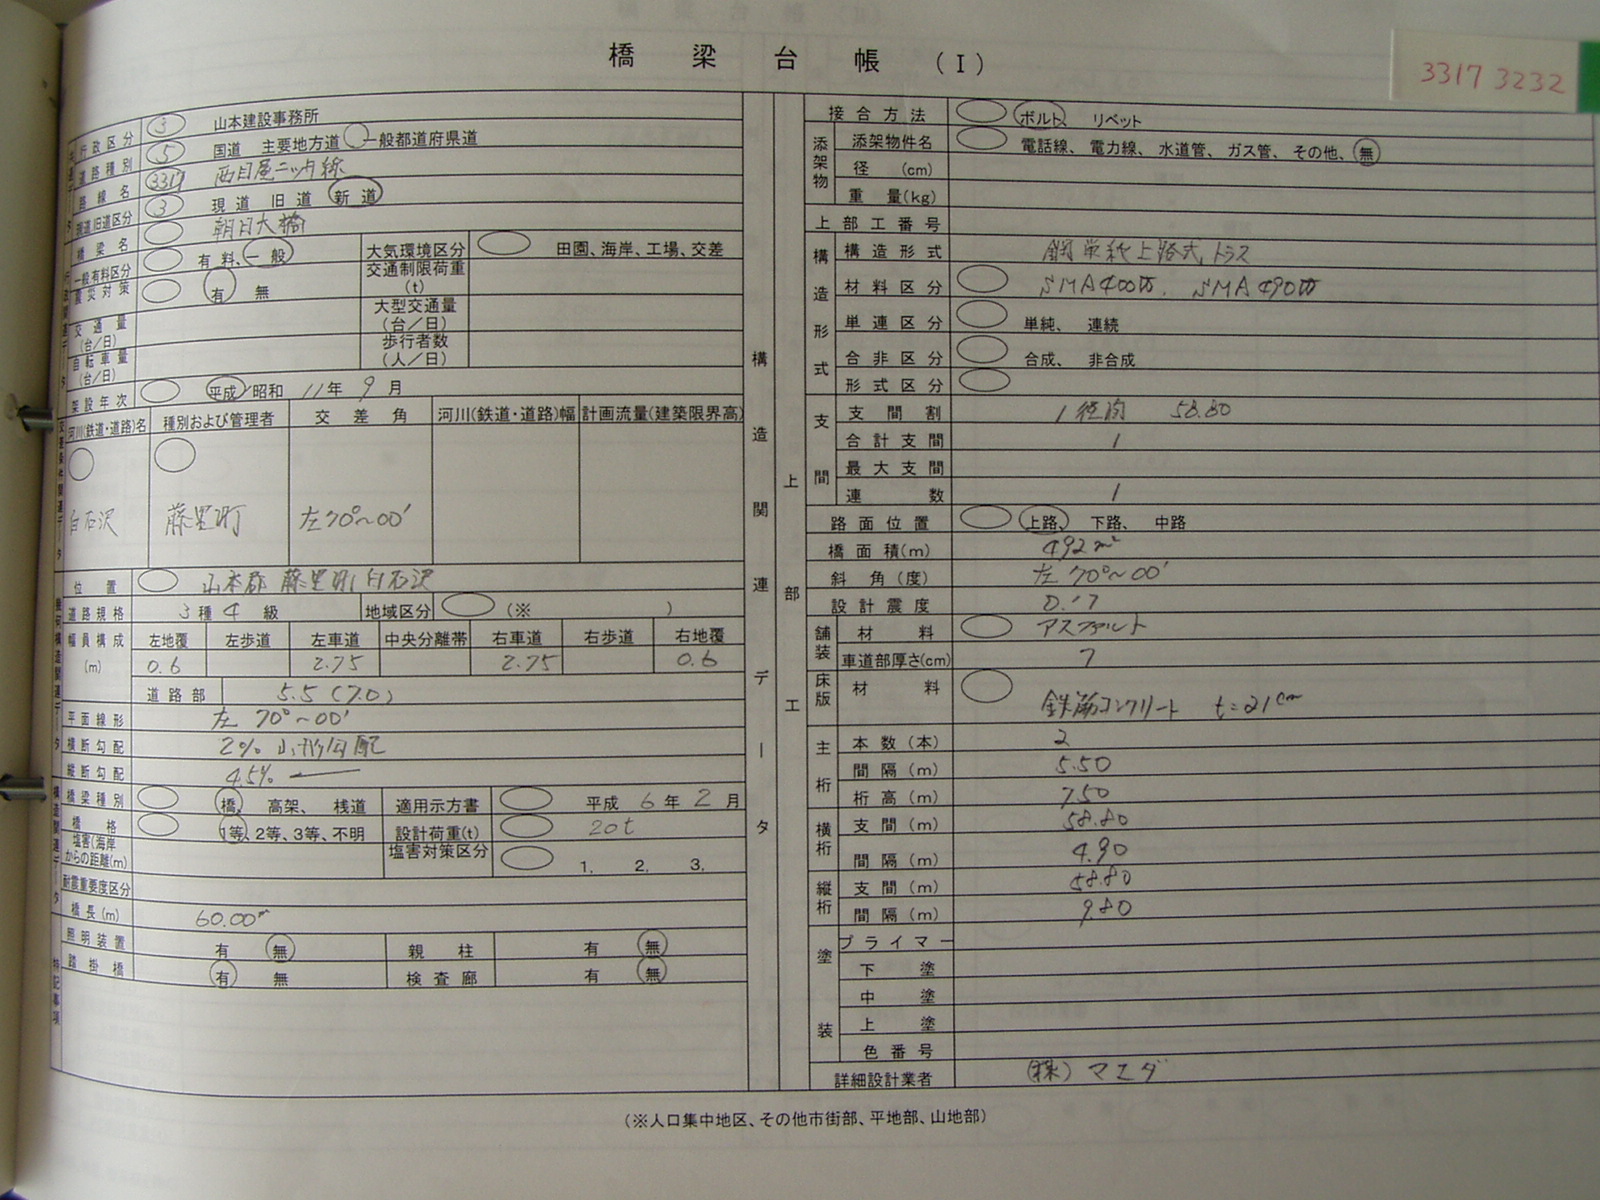 橋 梁 台 帳 (Ⅰ)
3317 3232
行政区分 3 山本建設事務所
道路種別 5 国道 主要地方道 一般都道府県道
路線名 3317 西目屋二ツ井線
現道旧道区分 3 現道 旧道 新道
橋梁名 朝日大橋
一般有料区分 有料、一般 大気環境区分 田園、海岸、工場、交差
震災対策 有 無 交通制限荷重(t)
交通量(台/日) 大型交通量(台/日)
自転車量(台/日) 歩行者数(人/日)
架設年次 平成/昭和 11年 9月
河川(鉄道・道路)名 種別および管理者 交差角 河川(鉄道・道路)幅 計画流量(建築限界高)
白石沢 藤里町 左70°~00'
位置 山本郡 藤里町 白石沢
道路規格 3種 4級 地域区分 (※ )
幅員構成(m) 左地覆 左歩道 左車道 中央分離帯 右車道 右歩道 右地覆
0.6 2.75 2.75 0.6
道路部 5.5 (7.0)
平面線形 左 70°~00'
横断勾配 2% 山形勾配
縦断勾配 4.5%
橋梁種別 橋、高架、桟道 適用示方書 平成 6年 2月
橋格 1等、2等、3等、不明 設計荷重(t) 20t
塩害(海岸からの距離(m) 塩害対策区分 1. 2. 3.
耐震重要度区分
橋長(m) 60.00m
照明装置 有 無 親柱 有 無
踏掛橋 有 無 検査廊 有 無
特記事項
構造関連データ
上部工
接合方法 ボルト、リベット
添架物 添架物件名 電話線、電力線、水道管、ガス管、その他、無
径 (cm)
重量(kg)
上部工番号
構造形式 構造形式 鋼単純上路式トラス
材料区分 SMA400W. SMA490W
単連区分 単純、連続
合非区分 合成、非合成
形式区分
支間 支間割 1径間 58.80
合計支間 1
最大支間
連数 1
路面位置 上路、下路、中路
橋面積(m) 492m²
斜角(度) 左 70°~00'
設計震度 0.17
舗装 材料 アスファルト
車道部厚さ(cm) 7
床版 材料 鉄筋コンクリート t=21cm
主桁 本数(本) 2
間隔(m) 5.50
桁高(m) 7.50
横桁 支間(m) 58.80
間隔(m) 4.90
縦桁 支間(m) 58.80
間隔(m) 9.80
塗装 プライマー
下塗
中塗
上塗
色番号
詳細設計業者 (株)マエダ
(※人口集中地区、その他市街部、平地部、山地部)